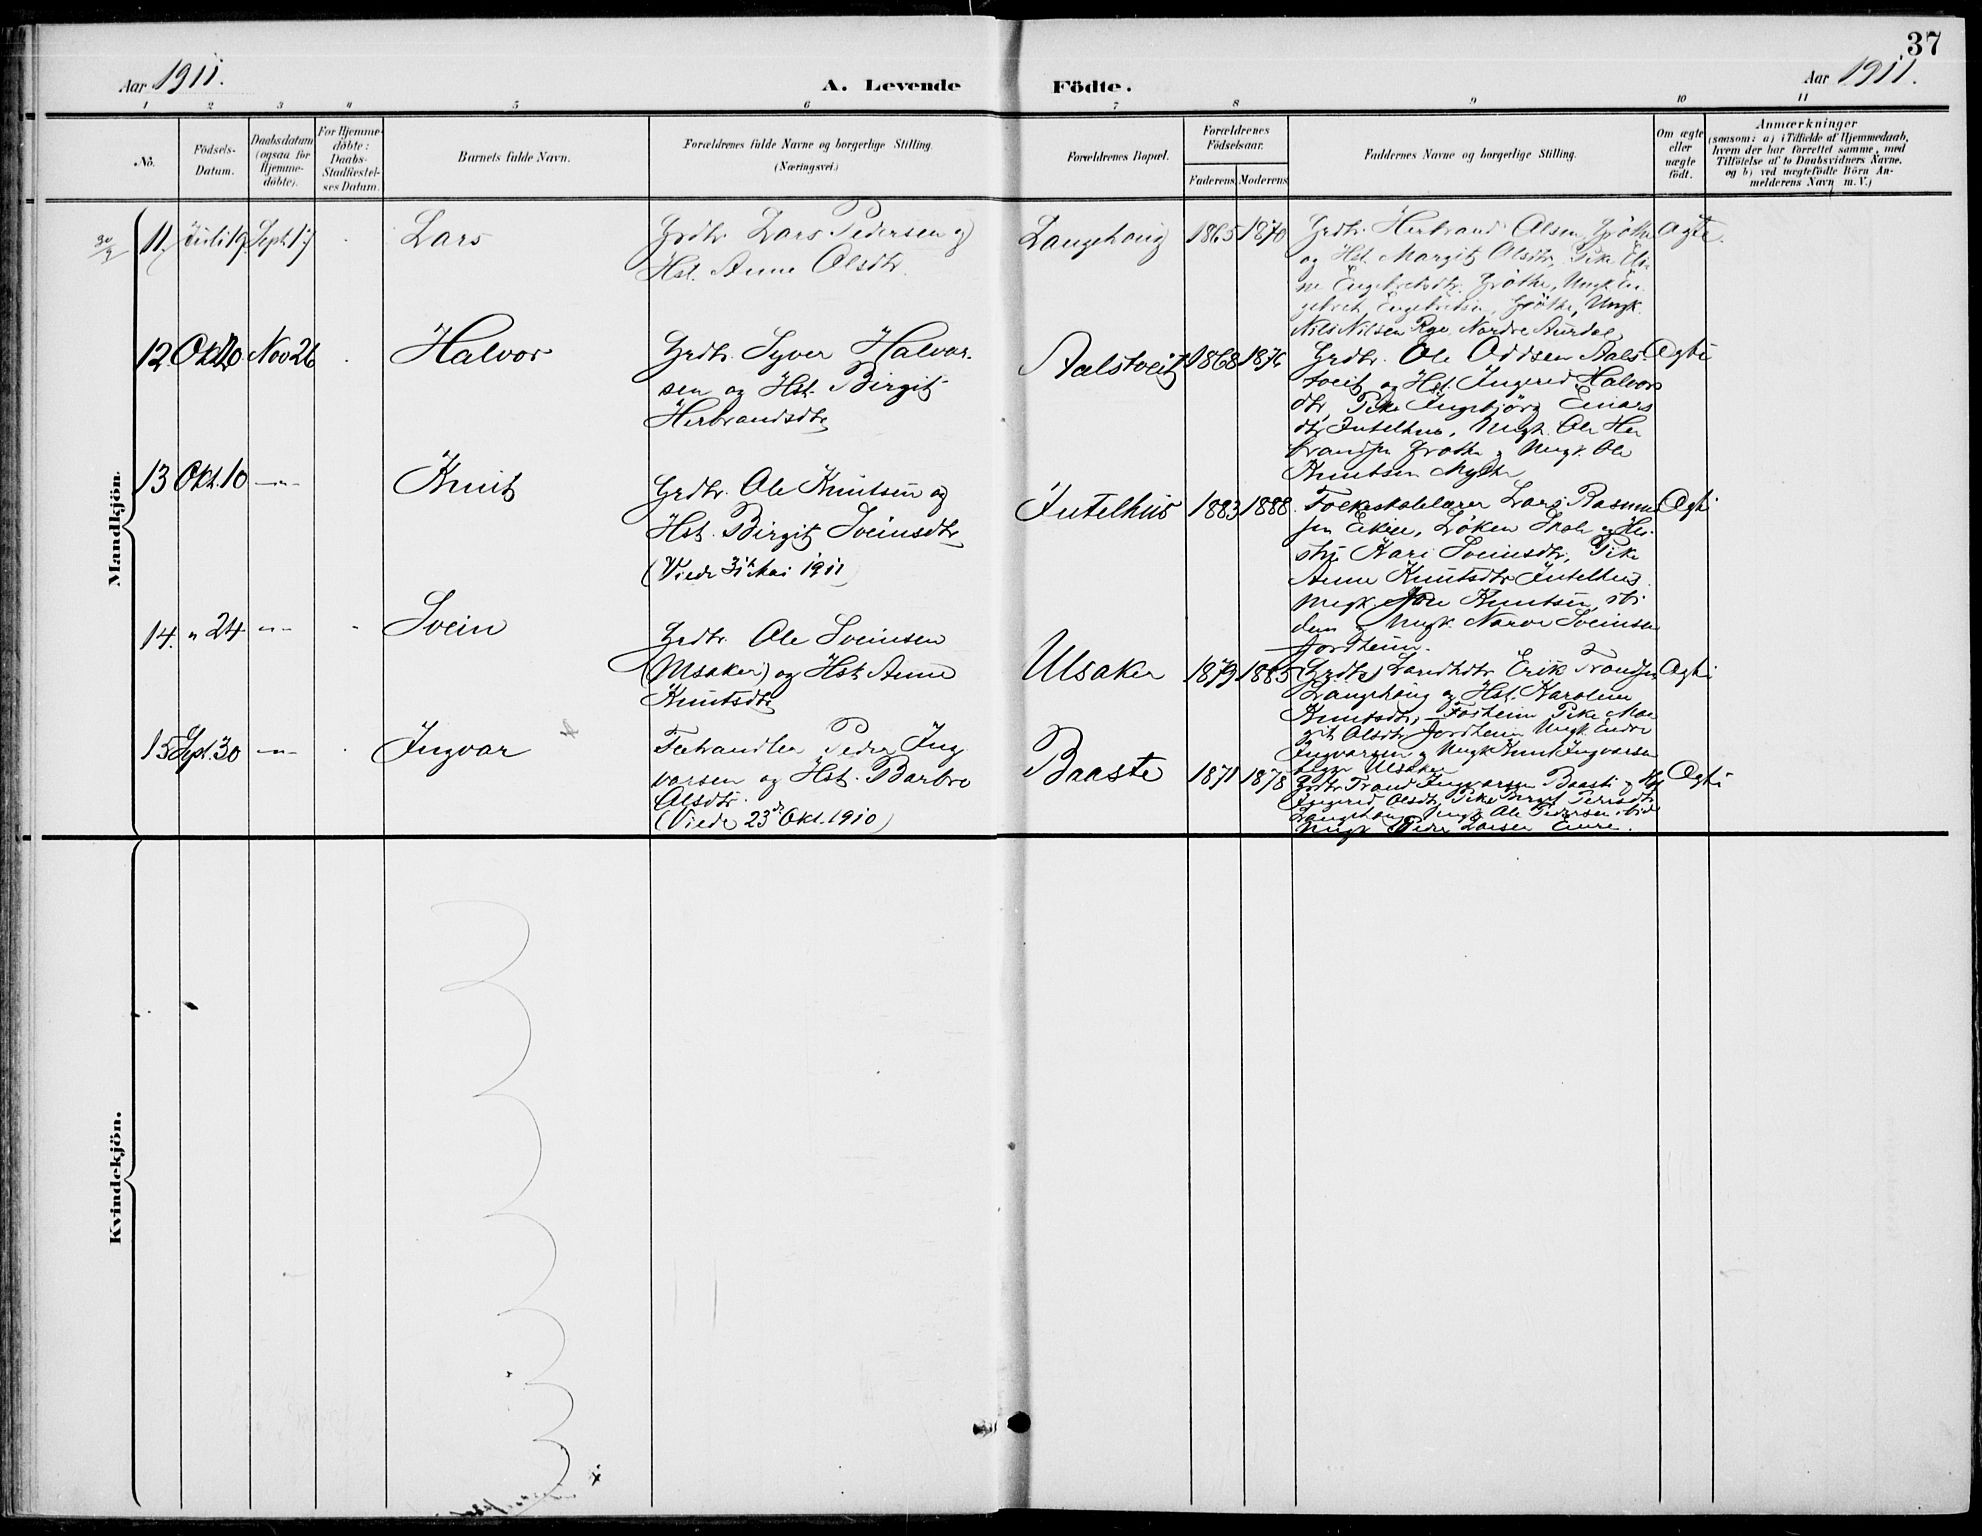 37
Aar 1911.
A. Levende Födte.
Aar 1911.
1 2 3 4 5 6 7 8 9 10 11
No.
Födsels-
Datum.
Daabsdatum
(ogsaa for
Hjemme-
döbte).
For Hjemme-
döbte:
Daabs-
Stadfæstel-
ses Datum.
Barnets fulde Navn.
Forældrenes fulde Navne og borgerlige Stilling.
(Næringsvei.)
Forældrenes Bopæl.
Forældrenes
Födselsaar.
Faderens. Moderens.
Faddernes Navne og borgerlige Stilling.
Om ægte
eller
uægte
födt.
Anmærkninger
(saasom: a) i Tilfælde af Hjemmedaab,
hvem der har forrettet samme, med
Tilföielse af to Daabsvidners Navne.
og b) ved uægtefödte Börn An-
melderens Navn m. V.)
Mandkjön.
11. Juli 19. Sept. 17 Lars
Grdbr. Lars Pedersen og
Hst. Anne Olsdtr.
Langehaug 1865 1870
Grdbr. Herbrand Olsen Gröthe
og Hst. Margit Olsdtr, Pike Eli-
ne Engebretsdtr. Gröthe, Ungk. En-
gebret Engebretsen, Gröthe, Ungk.
Nils Nilsen Rye Nordre Aurdal
Ægte.
12. Okt. 20 Nov 26 Halvor
Grdbr. Syver Halvor-
sen og Hst. Birgit
Herbrandsdtr
Aalstveit 1868 1876
Grdbr. Ole Oddsen Aals
tveit og Hst. Ingerid Halvors
dtr, Pike Ingebjörg Einars
dtr Intelhus, Ungk. Ole Her
brandsen Gröthe, Ungk. Ole
Knutsen Mythe
Ægte
13 Okt. 10 —"— Knut
Grdbr. Ole Knutsen og
Hst. Birgit Sveinsdtr
(Viede 31 Mai 1911)
Intelhus 1883 1888
Folkeskolelærer Lars Rasmus
sen Eikje, Löken Skole og Hu-
stru Kari Sveinsdtr, Pike
Anne Knutsdtr Intelhus
Ungk. Knutsen, sti
dem, Ungk. Narve Sveinsen
Jordheim.
Ægte
14. " 24 —"— Svein
Grdbr. Ole Sveinsen
(Ulsaker) og Hst Anne
Knutsdtr
Ulsaker 1879 1885
(Grdbr) Landhdlr. Erik Trondsen
Langehaug og Hst. Karoline
Knutsdtr, Jordheim Pike Mar
git Olsdtr Jordheim Ungk. Endre
Ingvarsen, Ungk Knut Ingvarsen
Ulsaker
Ægte
15 Sept. 30 —"— Ingvar
Fæhandler Peder Ing
varsen og Hst. Barbro
Olsdtr.
(Viede 23de Okt. 1910)
Baaste 1871 1878
Grdbr. Trond Ingvarsen Baaste, Hst
Ingerid Olsdtr, Pike Birgit Persdtr
Langehaug, Ungk Ole Pedersen ibid
Ungk Peder Larsen
Ægte
Kvindekjön.